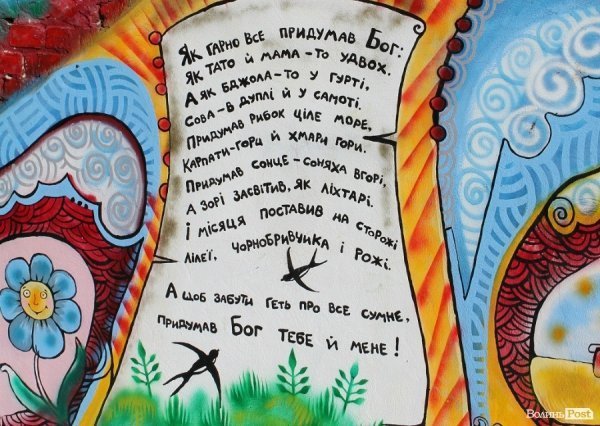 Як гарно все придумав Бог:
Як тато й мама-то удвох.
А як бджола-то у гурті,
Сова-в дуплі й у самоті.
Придумав рибок ціле море,
Карпати-гори й хмари гори.
Придумав сонце-соняха вгорі,
А зорі засвітив, як ліхтарі.
І місяця поставив на сторожі
Лілеї, чорнобривчика і рожі.
А щоб забути геть про все сумне,
придумав Бог тебе й мене!
ВолиньPost